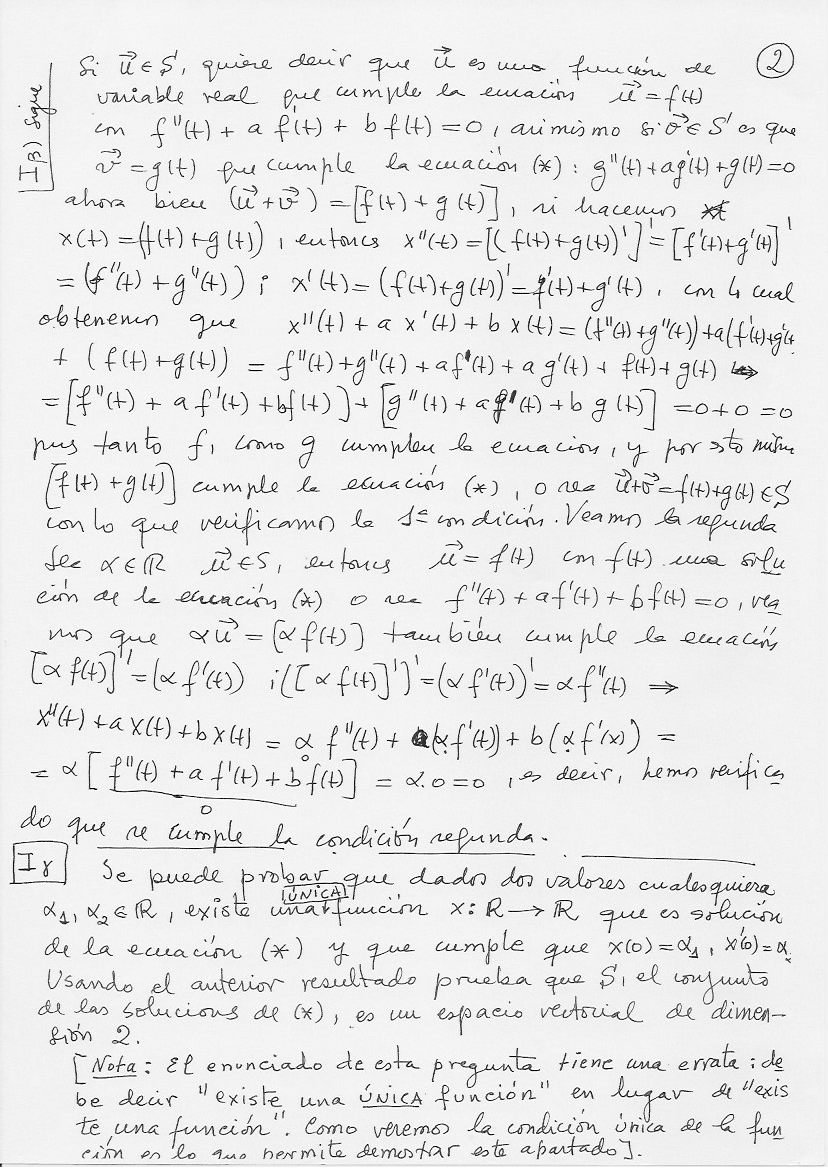 ②
Iβ) sigue
Si u⃗ ∈ S, quiere decir que u⃗ es una función de
variable real que cumple la ecuación u⃗ = f(t)
con f''(t) + a f'(t) + b f(t) = 0, asimismo si v⃗ ∈ S es que
v⃗ = g(t) que cumple la ecuación (*): g''(t) + ag'(t) + g(t) = 0
ahora bien (u⃗ + v⃗) = [f(t) + g(t)], si hacemos
x(t) = (f(t) + g(t)), entonces x''(t) = [(f(t) + g(t))']' = [f'(t) + g'(t)]'
= (f''(t) + g''(t)) ; x'(t) = (f(t) + g(t))' = f'(t) + g'(t), con lo cual
obtenemos que x''(t) + a x'(t) + b x(t) = (f''(t) + g''(t)) + a(f'(t) + g'(t
+ (f(t) + g(t)) = f''(t) + g''(t) + af'(t) + a g'(t) + f(t) + g(t)
= [f''(t) + a f'(t) + bf(t)] + [g''(t) + ag'(t) + b g(t)] = 0 + 0 = 0
pues tanto f, como g cumplen la ecuación, y por esto mismo
[f(t) + g(t)] cumple la ecuación (*), o sea u⃗ + v⃗ = f(t) + g(t) ∈ S
con lo que verificamos la 1ª condición. Veamos la segunda
Sea α ∈ ℝ u⃗ ∈ S, entonces u⃗ = f(t) con f(t) una solu
ción de la ecuación (*) o sea f''(t) + af'(t) + b f(t) = 0, vea
mos que αu⃗ = [αf(t)] también cumple la ecuación
[α f(t)]' = (α f'(t)) ; ([α f(t)]')' = (α f'(t))' = α f''(t) ⇒
x''(t) + a x(t) + b x(t) = α f''(t) + a(α f'(t)) + b(α f'(x)) =
= α [f''(t) + a f'(t) + b f(t)] = α.0 = 0, es decir, hemos verifica
0
do que se cumple la condición segunda.
Iγ Se puede probar que dados dos valores cualesquiera
ÚNICA
α₁, α₂ ∈ ℝ, existe una función x: ℝ → ℝ que es solución
de la ecuación (*) y que cumple que x(0) = α₁, x'(0) = α
Usando el anterior resultado prueba que S, el conjunto
de las soluciones de (*), es un espacio vectorial de dimen-
sión 2.
[Nota: El enunciado de esta pregunta tiene una errata: de
be decir "existe una ÚNICA función" en lugar de "exis
te una función". Como veremos la condición única de la fun
ción es lo que permite demostrar este apartado].